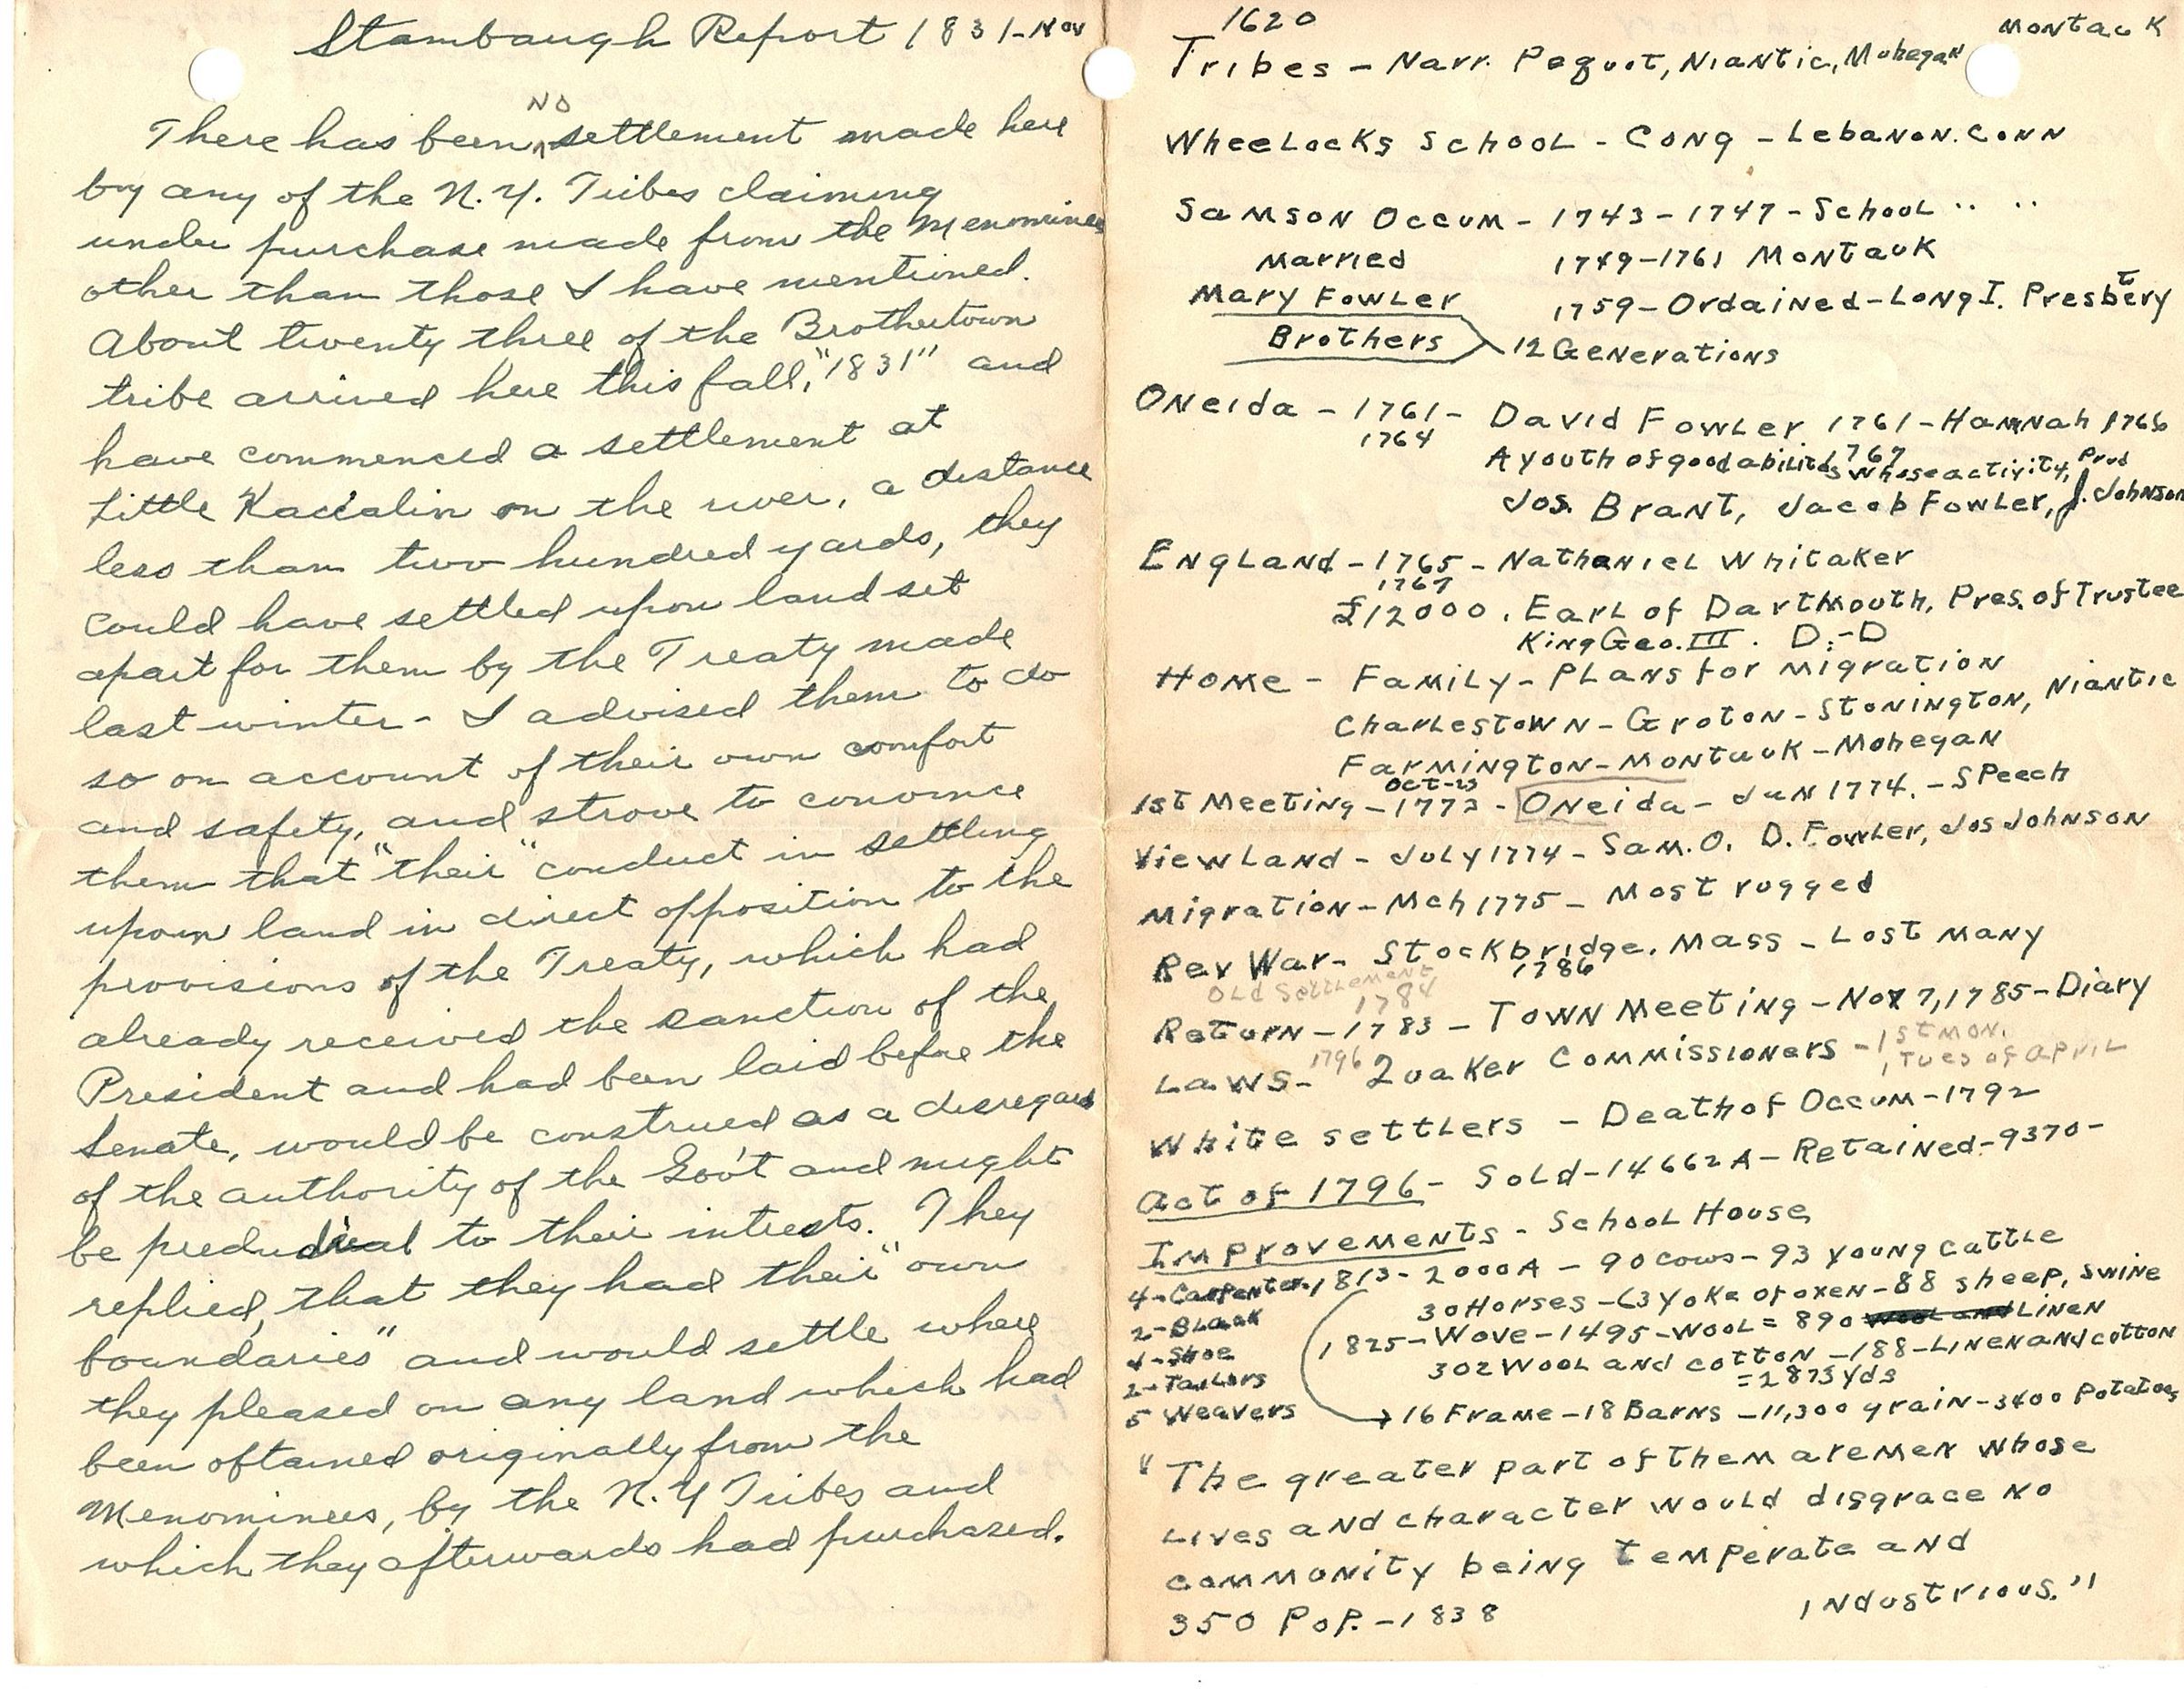 Stambaugh Report 1831-Nov
NO
There has been settlement made here
by any of the N.Y. Tribes claiming
under purchase made from the Menominees
other than those I have mentioned.
About twenty three of the Brothertown
tribe arrived here this fall, "1831" and
have commenced a settlement at
Little Kaccalin on the river, a distance
less than two hundred yards, they
could have settled upon land set
apart for them by the Treaty made
last winter - I advised them to do
so on account of their own comfort
and safety, and strove to convince
them that "their" conduct in settling
upon land in direct opposition to the
provisions of the Treaty, which had
already received the sanction of the
President and had been laid before the
Senate, would be construed as a disregard
of the authority of the Gov't and might
be predudicial to their intrests. They
replied, that they had their "own
boundaries" and would settle where
they pleased on any land which had
been oftained originally from the
Menominees, by the N.Y Tribes and
which they afterwards had purchased.
1620
Montauk
Tribes - Narr. Pequot, Niantic, Mohegan
Wheelocks School - Cong - Lebanon. Conn
Samson Occum - 1743-1747 - School " "
Married 1749-1761 Montauk
Mary Fowler 1759-Ordained-Long I. Presbtery
Brothers 12 Generations
Oneida - 1761 - David Fowler 1761-Hannah 1766
1764 1767
A youth of good abilities whose activity, Prud
Jos. Brant, Jacob Fowler, J. Johnson
England - 1765 - Nathaniel Whitaker
1767
£12000. Earl of Dartmouth, Pres. of Trustee
King Geo. III. D.-D
Home - Family - Plans for migration
Charlestown - Groton - Stonington, Niantic
Farmington - Montauk - Mohegan
Oct-23
1st Meeting - 1773 - Oneida - Jan 1774. - Speech
View Land - July 1774 - Sam. O. D. Fowler, Jos Johnson
Migration - Mch 1775 - Most rugged
Rev War - Stockbridge. Mass - Lost many
Old Settlement 1786
1784
Return - 1783 - Town Meeting - Nov 7, 1785 - Diary
Laws - 1796 Quaker Commissioners - 1st Mon.
Tues of April
White settlers - Death of Occum - 1792
Act of 1796 - Sold - 14662 A - Retained - 9370 -
Improvements - School House
4 - Carpenter 1813 - 2000 A - 90 cows - 93 young cattle
30 Horses - 63 yoke of oxen - 88 sheep, swine
2 - Black
1825 - Wove - 1495 - Wool = 890 Linen
4 - Shoe
302 Wool and cotton - 188 - Linen and cotton
2 - Tailors
= 2875 yds
5 Weavers
16 Frame - 18 Barns - 11,300 grain - 3400 Potatoes
"The greater part of them are men whose
lives and character would disgrace no
community being temperate and
industrious."
350 Pop. - 1838